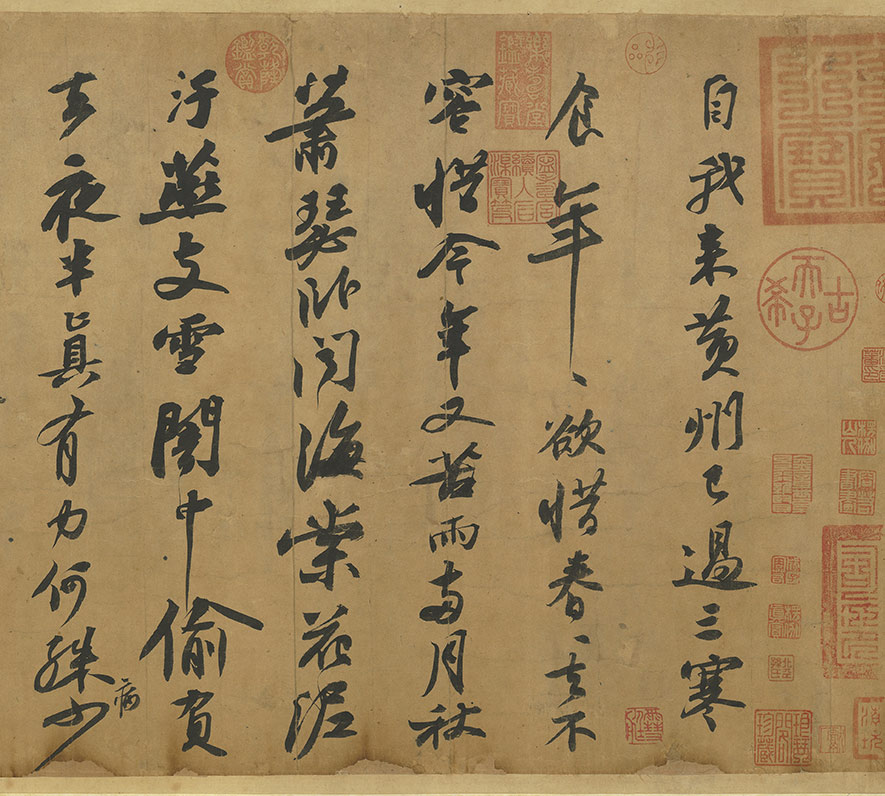 自我來黃州已過三寒
食年〻欲惜春〻去不
容惜今年又苦雨兩月秋
蕭瑟卧聞海棠花泥
汙燕支雪闇中偷負
去夜半眞有力何殊少
病
古希天子
乾隆鑑賞